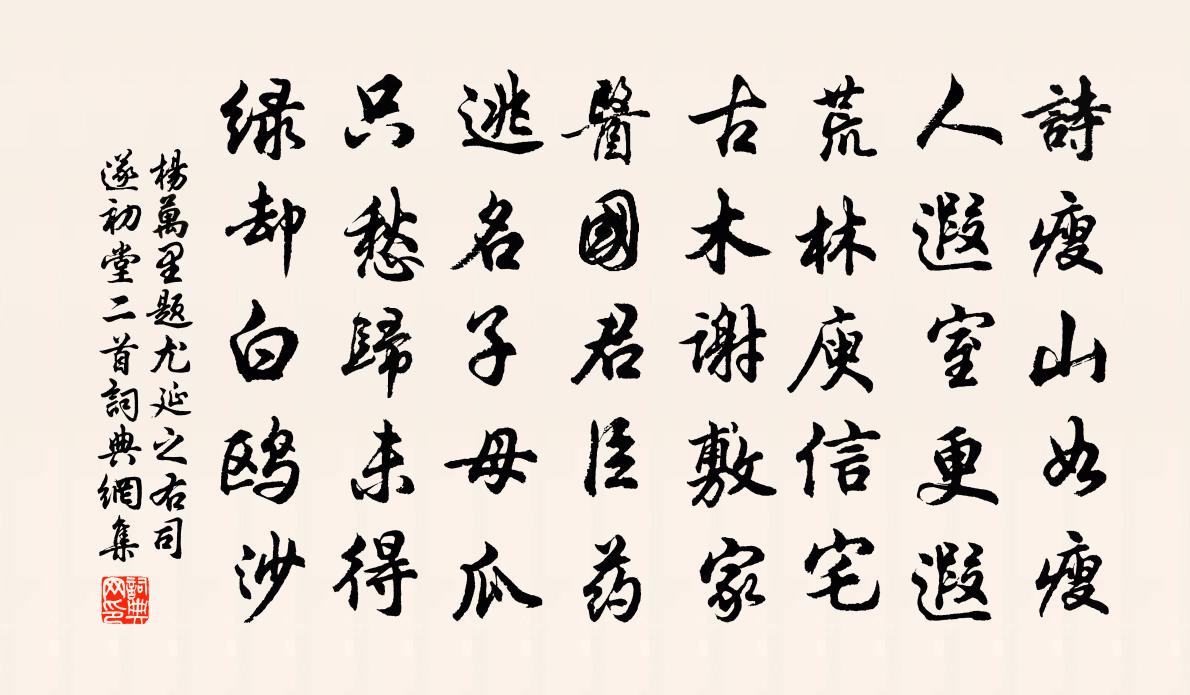 詩瘦山如瘦
人遐室更遐
荒林庾信宅
古木謝敷家
醫國君臣药
逃名子母瓜
只愁歸未得
绿却白鸥沙
楊萬里题尤延之右司
遂初堂二首詞典網集
詞典网印